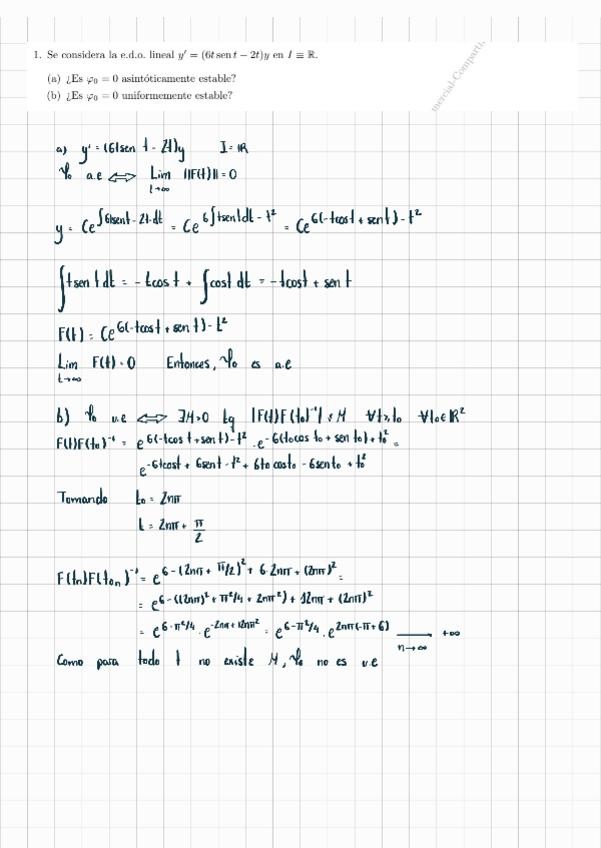 1. Se considera la e.d.o. lineal y′ = (6t sen t − 2t)y en I ≡ ℝ.
(a) ¿Es φ₀ = 0 asintóticamente estable?
(b) ¿Es φ₀ = 0 uniformemente estable?
a) y' = (6tsen t - 2t)y I = ℝ
φ₀ a.e ⟺ Lim ||F(t)|| = 0
t→∞
y = Ce^∫6tsent - 2t·dt = Ce^6∫tsent dt - t² = Ce^6(-tcost + sent) - t²
∫tsen t dt = -tcos t + ∫cost dt = -tcost + sen t
F(t) = Ce^6(-tcost + sen t) - t²
Lim F(t) = 0 Entonces, φ₀ es a.e
t→∞
b) φ₀ u.e ⟺ ∃M>0 tq |F(t)F(t₀)⁻¹| ≤ M ∀t≥t₀ ∀t₀∈ℝ²
F(t)F(t₀)⁻¹ = e^6(-tcos t + sen t) - t² · e^-6(t₀cos t₀ + sen t₀) + t₀² =
e^-6tcost + 6sent - t² + 6t₀ cost₀ - 6sent₀ + t₀²
Tomando t₀ = 2nπ
t = 2nπ + π/2
F(tn)F(t₀n)⁻¹ = e^6 - (2nπ + π/2)² + 6·2nπ + (2nπ)² =
= e^6 - ((2nπ)² + π²/4 + 2nπ²) + 12nπ + (2nπ)²
= e^6 - π²/4 · e^-2nπ + 12nπ² = e^6 - π²/4 · e^2nπ(-π + 6) → +∞
n→∞
Como para todo t no existe M, φ₀ no es u.e